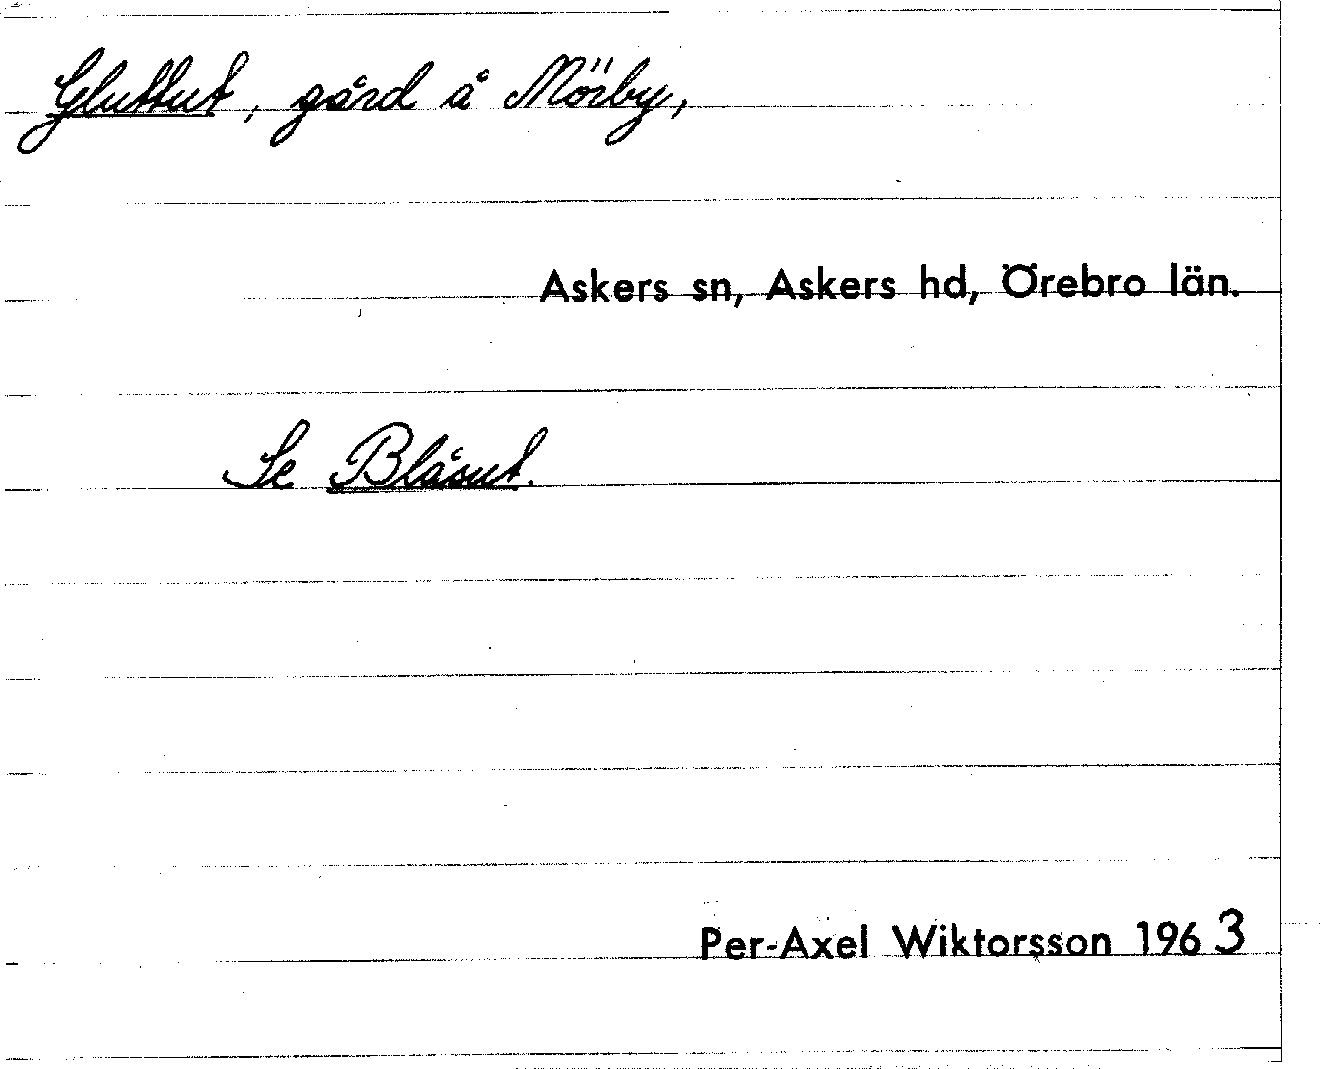 Gluttut, gård å Mörby,
Askers sn, Askers hd, Örebro län.
Se Blåsut.
Per-Axel Wiktorsson 1963